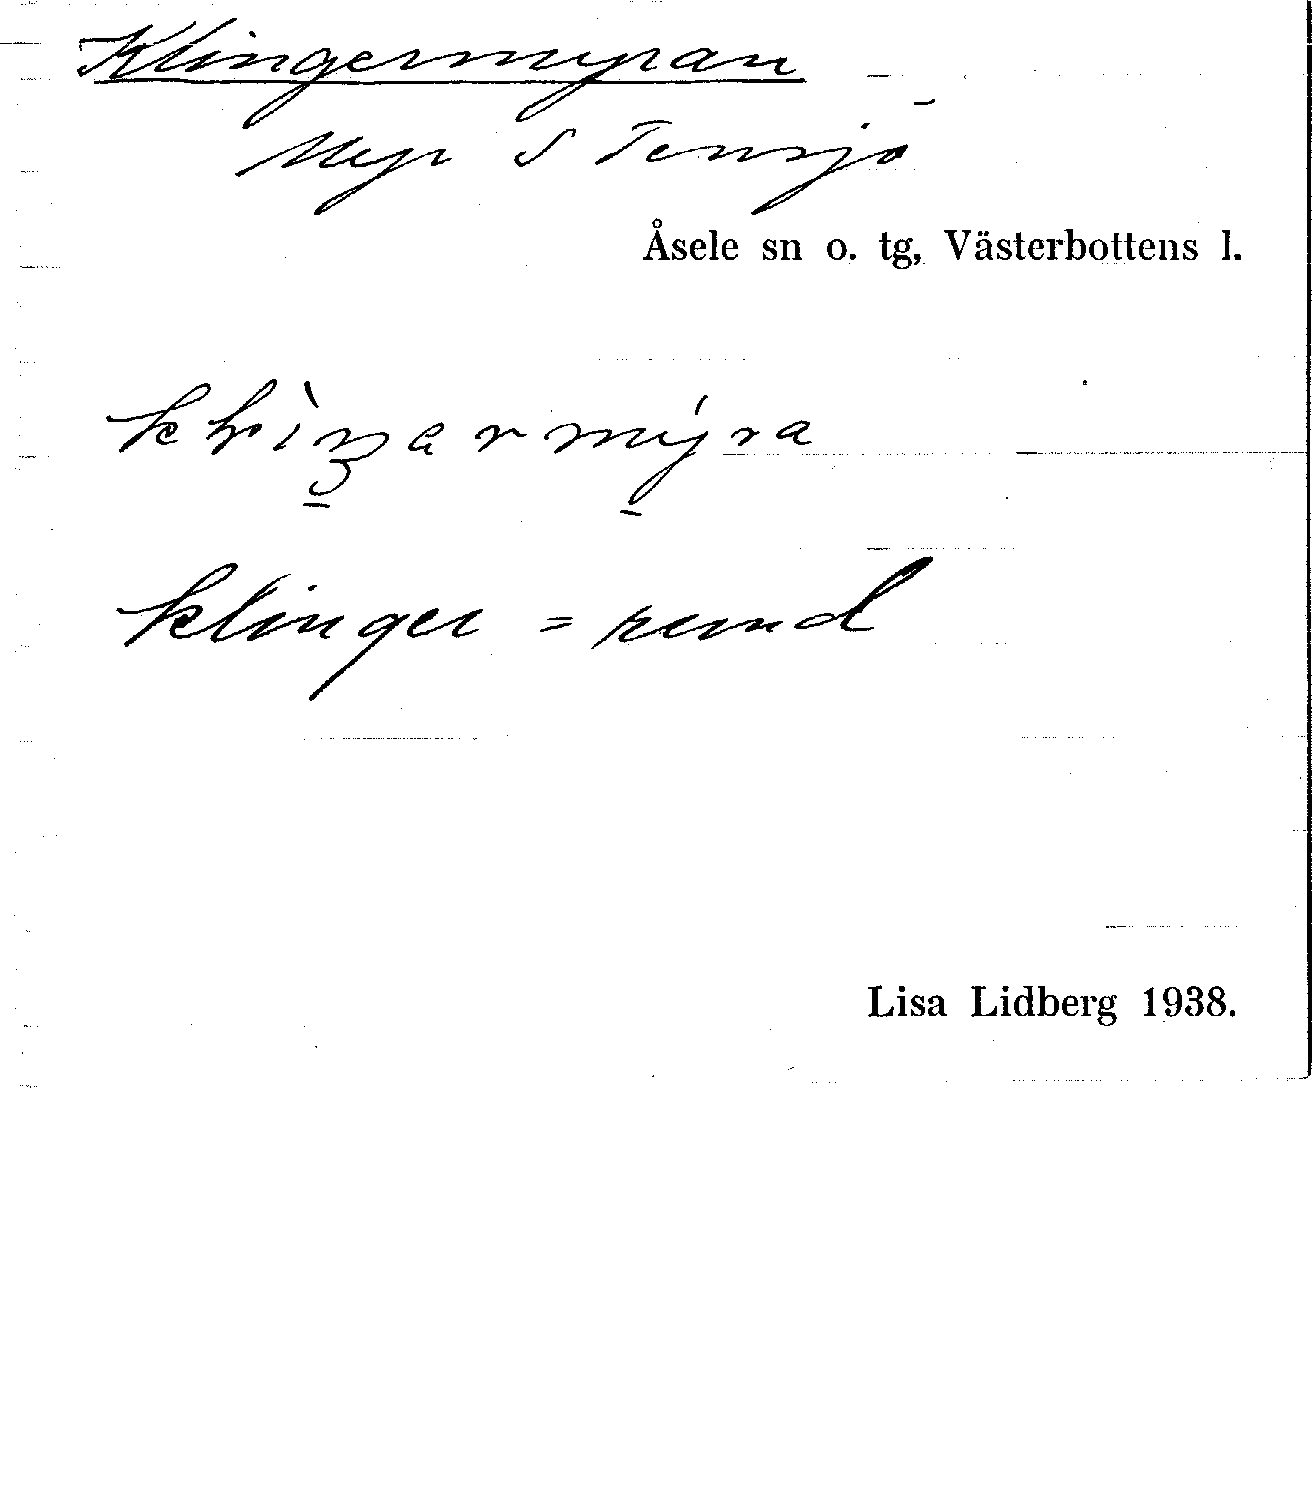 Klingermyran
Myr S Tensjö
Åsele sn o. tg, Västerbottens l.
klinger = rund
Lisa Lidberg 1938.